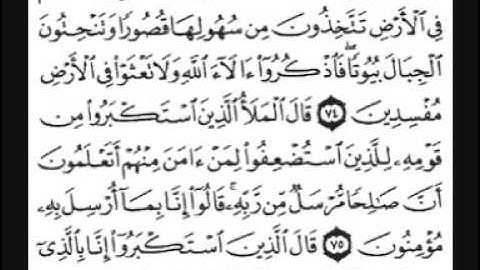 فِي ٱلْأَرْضِ تَتَّخِذُونَ مِن سُهُولِهَا قُصُورًا وَتَنْحِتُونَ
ٱلْجِبَالَ بُيُوتًا ۖ فَٱذْكُرُوٓا۟ ءَالَآءَ ٱللَّهِ وَلَا تَعْثَوْا۟ فِي ٱلْأَرْضِ
مُفْسِدِينَ ٧٤ قَالَ ٱلْمَلَأُ ٱلَّذِينَ ٱسْتَكْبَرُوا۟ مِن
قَوْمِهِۦ لِلَّذِينَ ٱسْتُضْعِفُوا۟ لِمَنْ ءَامَنَ مِنْهُمْ أَتَعْلَمُونَ
أَنَّ صَٰلِحًا مُّرْسَلٌ مِّن رَّبِّهِۦ ۚ قَالُوٓا۟ إِنَّا بِمَآ أُرْسِلَ بِهِۦ
مُؤْمِنُونَ ٧٥ قَالَ ٱلَّذِينَ ٱسْتَكْبَرُوٓا۟ إِنَّا بِٱلَّذِيٓ